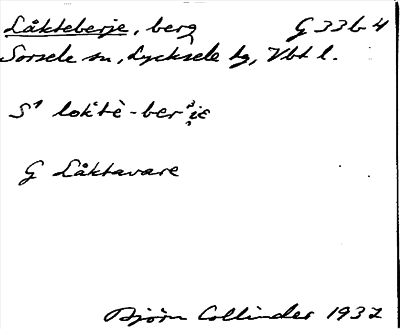 Låkteberje, berg G 33b 4
Sorsele sn, Lycksele tg, Vbt l.
S¹ lok`tè-ber`i̯e
G Låktavare
Björn Collinder 1932